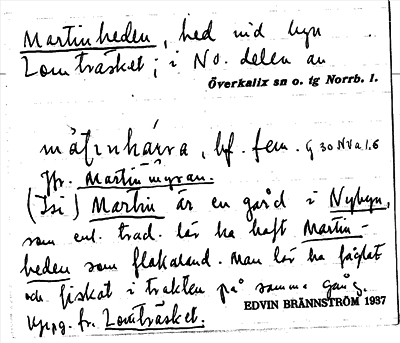 Martinheden, hed vid byn
Lomträsket; i No. delen av
Överkalix sn o. tg Norrb. l.
bf. fem. G 30 NV a 1.6
Jfr. Martinmyran.
(Isi) Martin är en gård i Nybyn,
som enl. trad. lär ha haft Martin-
heden som flakaland. Man lär ha fåglat
och fiskat i trakten på samma gång.
Uppg. fr. Lomträsket.
EDVIN BRÄNNSTRÖM 1937